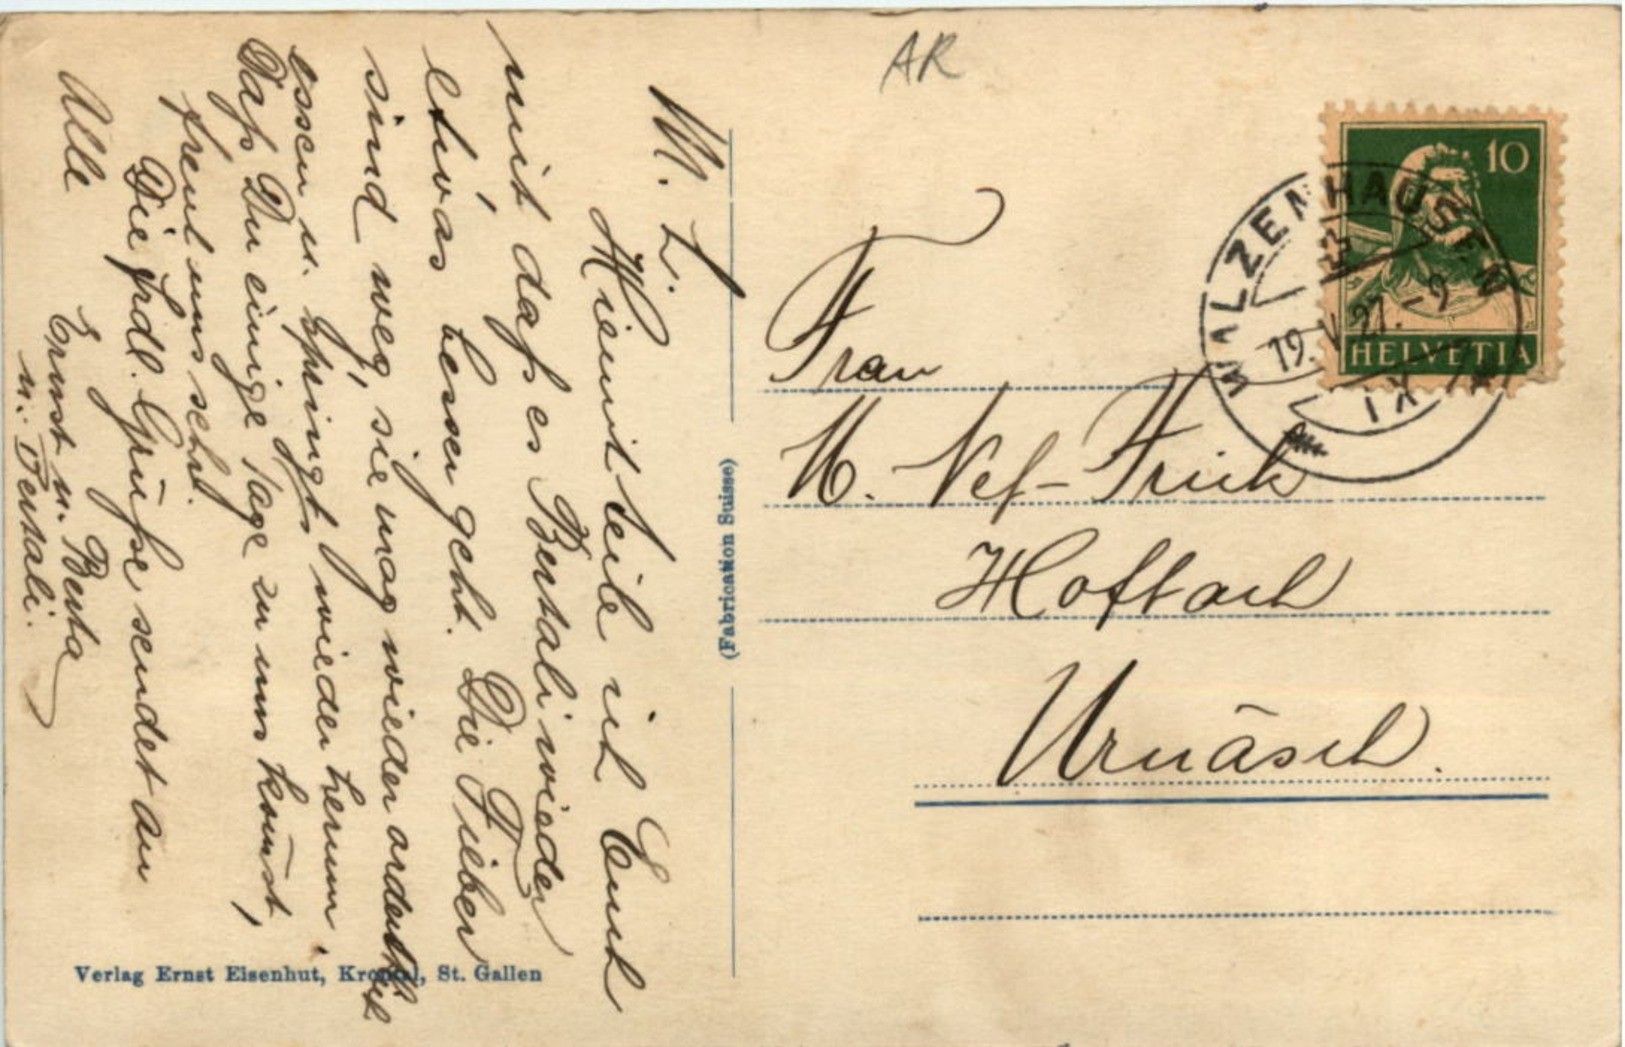 M. L.
Hiemit teile ich Euch
mit daß es Bertali wieder
etwas besser geht. Die Fieber
sind weg, sie mag wieder ordentlich
essen u. springt wieder herum.
Daß Du einige Tage zu uns kommst,
freut uns sehr.
Die frdl. Grüße sendet an
Alle
Ernst u. Berta
u. Bertali.
Verlag Ernst Eisenhut, Kronthal, St. Gallen
(Fabrication Suisse)
AR
10
HELVETIA
WALZENHAUSEN
19. 27. -9
Frau
M. Nef-Frick
Hofbach
Urnäsch.